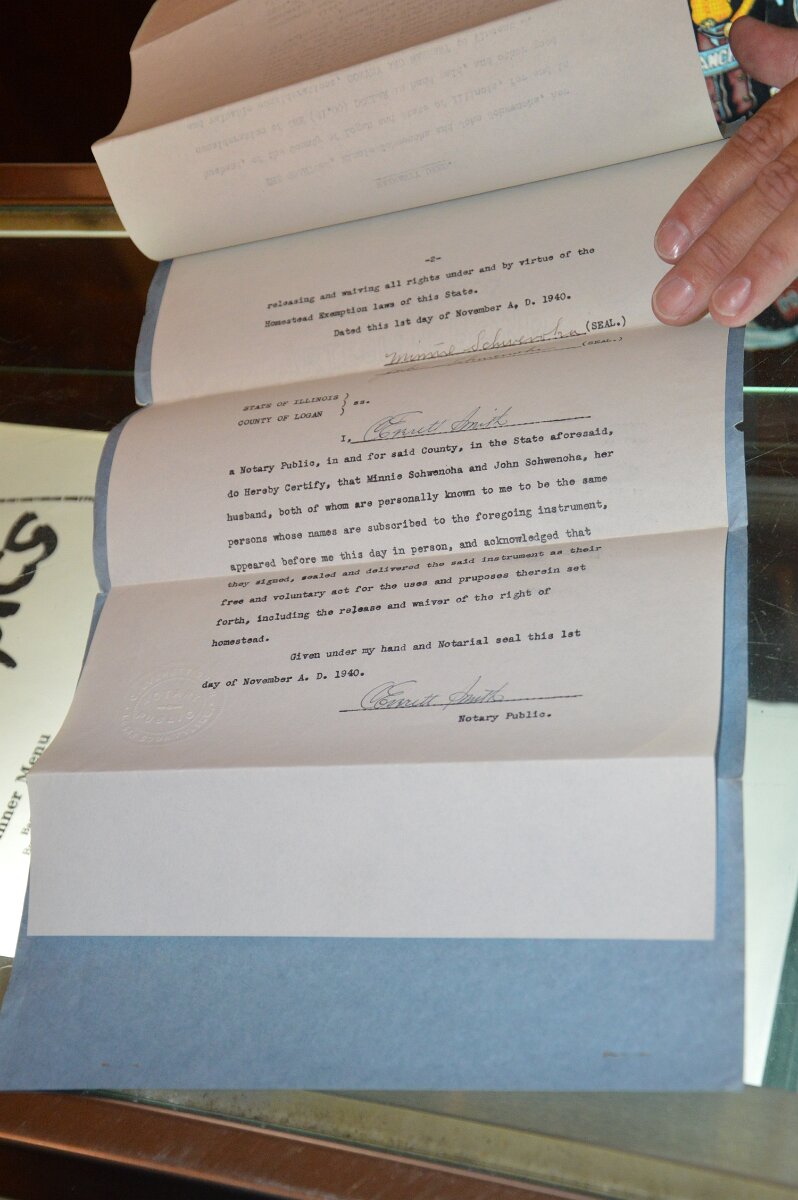 -2-
releasing and waiving all rights under and by virtue of the
Homestead Exemption laws of this State.
Dated this 1st day of November A. D. 1940.
Minnie Schwenoha (SEAL.)
(SEAL.)
STATE OF ILLINOIS } ss.
COUNTY OF LOGAN }
I, Everett Smith
a Notary Public, in and for said County, in the State aforesaid,
do Hereby Certify, that Minnie Schwenoha and John Schwenoha, her
husband, both of whom are personally known to me to be the same
persons whose names are subscribed to the foregoing instrument,
appeared before me this day in person, and acknowledged that
they signed, sealed and delivered the said instrument as their
free and voluntary act for the uses and pruposes therein set
forth, including the release and waiver of the right of
homestead.
Given under my hand and Notarial seal this 1st
day of November A. D. 1940.
Everett Smith
Notary Public.
NOTARY
PUBLIC
nner Menu